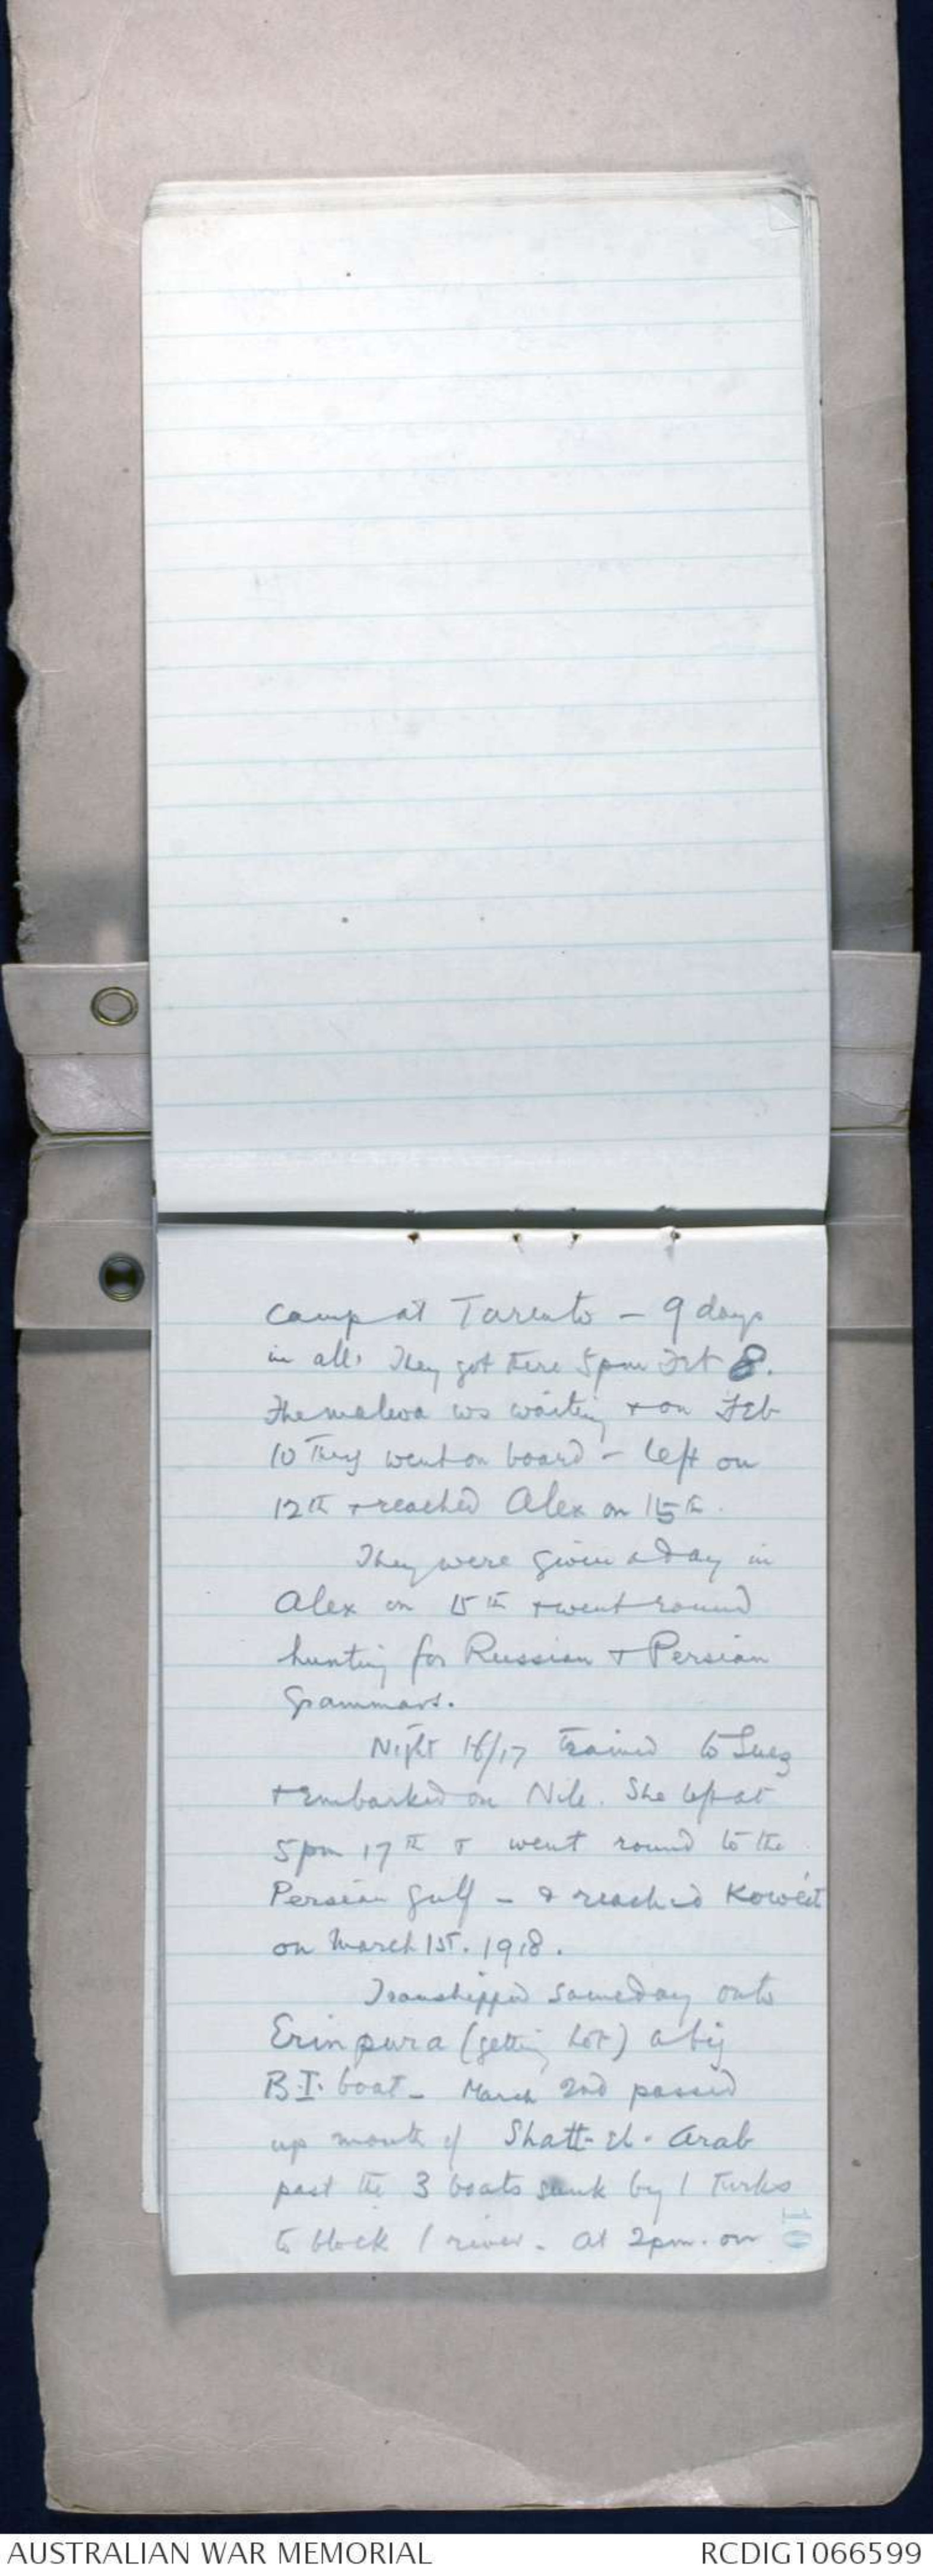 camp at Taranto – 9 days
in all. They got there 5pm Feb 8.
The malwa ws waiting & on Feb
10 They went on board – left on
12th & reached Alex on 15th.
They were given a day in
Alex on 15th & went round
hunting for Russian & Persian
Grammars.
Night 16/17 trained to Suez
& embarked on Nile. She left at
5pm 17th & went round to the
Persian Gulf – & reached Koweit
on March 1st. 1918.
Transhipped same day onto
Erinpura (getting hot) a big
B.I. boat – March 2nd passed
up mouth of Shatt-el-Arab
past the 3 boats sunk by / Turks
to block / river. At 2pm. on
10
AUSTRALIAN WAR MEMORIAL
RCDIG1066599